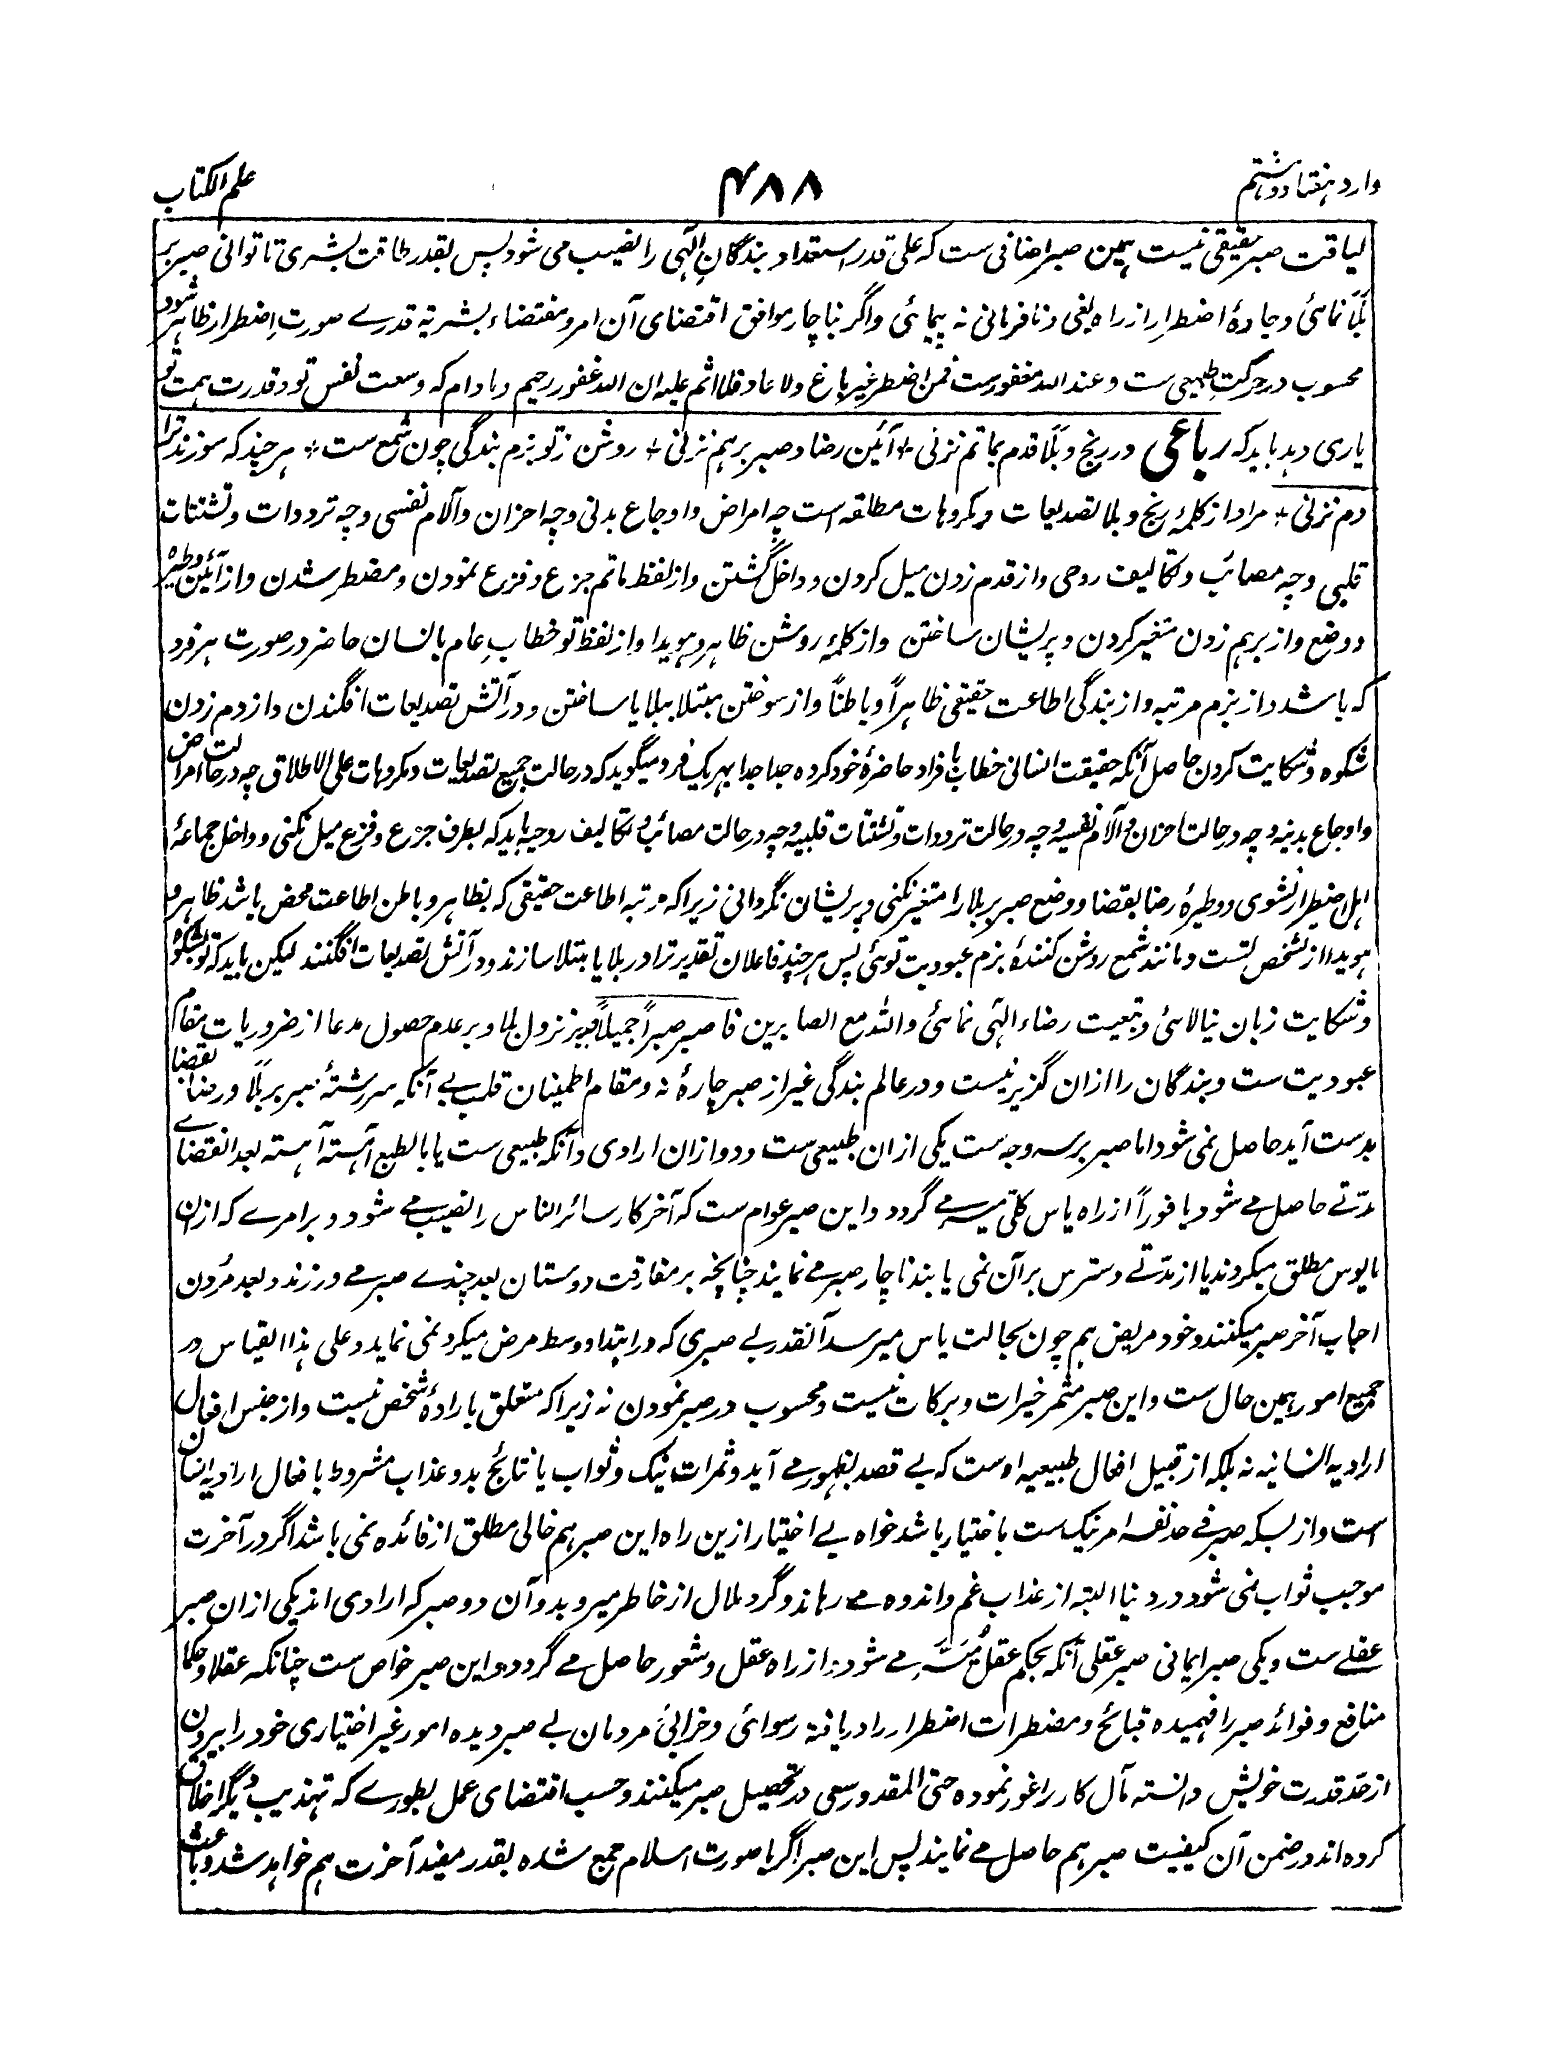 وارد هفتاد و هشتم
۴۸۸
علم الکتاب
لیاقت صبر حقیقی نیست همین صبر اضافی ست که علی قدر استعداد بندگانِ الٓہی را نصیب می شود پس بقدر طاقت بشری تا توانی صبر بر
بَلا نمائی و جادۂ اضطرار از راہ بغی و نافرمانی نه پیمائی و اگر ناچار موافق اقتضای آن امر و مقتضاء بشریة قدرے صورتِ اضطرار ظاہر شود
محسوب در حرکتِ طبیعی ست و عند الله مغفور ست فمن اضطر غیر باغ ولا عاد فلا اثم علیه ان الله غفور رحیم و مادام که وسعت نفس تو و قدرت ہمت تو
یاری دہد باید که رباعی در رنج و بَلَا قدم بماتم نزنی + آئین رضا و صبر برہم نزنی + روشن ز تو بزم بندگی چون شمع ست + ہر چند که سوزند ترا
دم نزنی + مراد از کلمۂ رنج و بلا تصدیعات و مکروہات مطلقه است چه امراض و اوجاع بدنی و چه احزان و آلام نفسی و چه ترددات و تشتتات
قلبی و چه مصائب و تکالیف روحی و از قدم زدن میل کردن و داخل گشتن و از لفظ ماتم جزع و فزع نمودن و مضطر شدن و از آئین وطیرہ
و وضع و از برہم زدن متغیر کردن و پریشان ساختن و از کلمۂ روشن ظاہر و ہویدا و از لفظ تو خطابِ عام بانسان حاضر در صورت ہر فرد
که باشد و از بزم مرتبه و از بندگی اطاعت حقیقی ظاہراً و باطناً و از سوختن مبتلا ببلایا ساختن و در آتش تصدیعات افگندن و از دم زدن
شکوہ و شکایت کردن حاصل آنکه حقیقت انسانی خطاب بافراد حاضرۂ خود کردہ جدا جدا بہر یک فرد میگوید که در حالت جمیع تصدیعات و مکروہات علی الاطلاق چه در حالت امراض
و اوجاع بدنیه و چه در حالت احزان و آلام نفسیه و چه در حالت ترددات و تشتتات قلبیه و چه در حالت مصائب و تکالیف روحیه باید که بطرف جزع و فزع میل نکنی و داخل جماعۂ
اہل اضطرار نشوی و وطیرۂ رضا بقضا و وضع صبر بر بلا را متغیر نکنی و پریشان نگردانی زیرا که مرتبه اطاعت حقیقی که بظاہر و باطن اطاعت محض باشد ظاہر و
ہویدا از تشخص تست و مانند شمع روشن کنندۂ بزم عبودیت توئی پس ہر چند فاعلان تقدیر ترا در بلایا مبتلا سازند و در آتش تصدیعات افگنند لیکن باید که تو بشکوہ
و شکایت زبان نیالائی و تبعیت رضاء الٓہی نمائی والله مع الصابرین فاصبر صبراً جمیلاً صبر بر نزول بلا و بر عدم حصول مدعا از ضروریات مقام
عبودیت ست و بندگان را ازان گزیر نیست و در عالم بندگی غیر از صبر چارۂ نه و مقام اطمینان قلب بے آنکه سررشتۂ صبر بر بَلَا و رضا بقضا
بدست آید حاصل نمی شود اما صبر بر سه وجه ست یکی ازان طبیعی ست و دو ازان ارادی و آنکه طبیعی ست یا بالطبع آہسته آہسته بعد انقضاے
مدّتے حاصل مے شود یا فوراً از راہ یاس کلّی میسر مے گردد و این صبر عوام ست که آخر کار سائر الناس را نصیب مے شود و بر امرے که ازان
مایوس مطلق میگردند یا از مدّتے دسترس بر آن نمی یابند ناچار صبر مے نمایند چنانچه بر مفارقت دوستان بعد چندے صبر مے ورزند و بعد مُردن
احباب آخر صبر میکنند و خود مریض ہم چون بحالت یاس میرسد آنقدر بے صبری که در ابتدا و وسط مرض میکرد نمی نماید و علی ہذا القیاس در
جمیع امور ہمین حال ست و این صبر مثمر خیرات و برکات نیست و محسوب در صبر نمودن نه زیرا که متعلق بارادۂ شخص نیست و از جنس افعال
ارادیه انسانیه نه بلکه از قبیل افعال طبیعیه اوست که بے قصد بظہور مے آید و ثمرات نیک و ثواب یا نتائج بد و عذاب مشروط بافعال ارادیه انسان
است و از بسکه صبر فی حد نفسه امر نیک ست باختیار باشد خواہ بے اختیار ازین راہ این صبر ہم خالی مطلق از فائدہ نمی باشد اگر در آخرت
موجب ثواب نمی شود در دنیا البته از عذاب غم و اندوہ مے رہاند و گرد ملال از خاطر میروبد و آن دو صبر که ارادی اند یکی ازان صبر
عقلے ست و یکی صبر ایمانی صبر عقلی آنکه بحکم عقل میسّر مے شود و از راہ عقل و شعور حاصل مے گردد و این صبر خواص ست چنانکه عقلا و حکما
منافع و فوائد صبر را فہمیدہ قبائح و مضطرات اضطرار را دریافته رسوائی و خرابیٔ مردمان بے صبر دیدہ امور غیر اختیاری خود را بیرون
از حد قدرت خویش دانسته مآل کار را غور نمودہ حتی المقدور سعی در تحصیل صبر میکنند و حسب اقتضای عمل بطورے که تہذیب دیگر اخلاق
کردہ اند در ضمن آن کیفیت صبر ہم حاصل مے نمایند پس این صبر اگر با صورت اسلام جمع شدہ بقدر مفید آخرت ہم خواہد شد و باعث